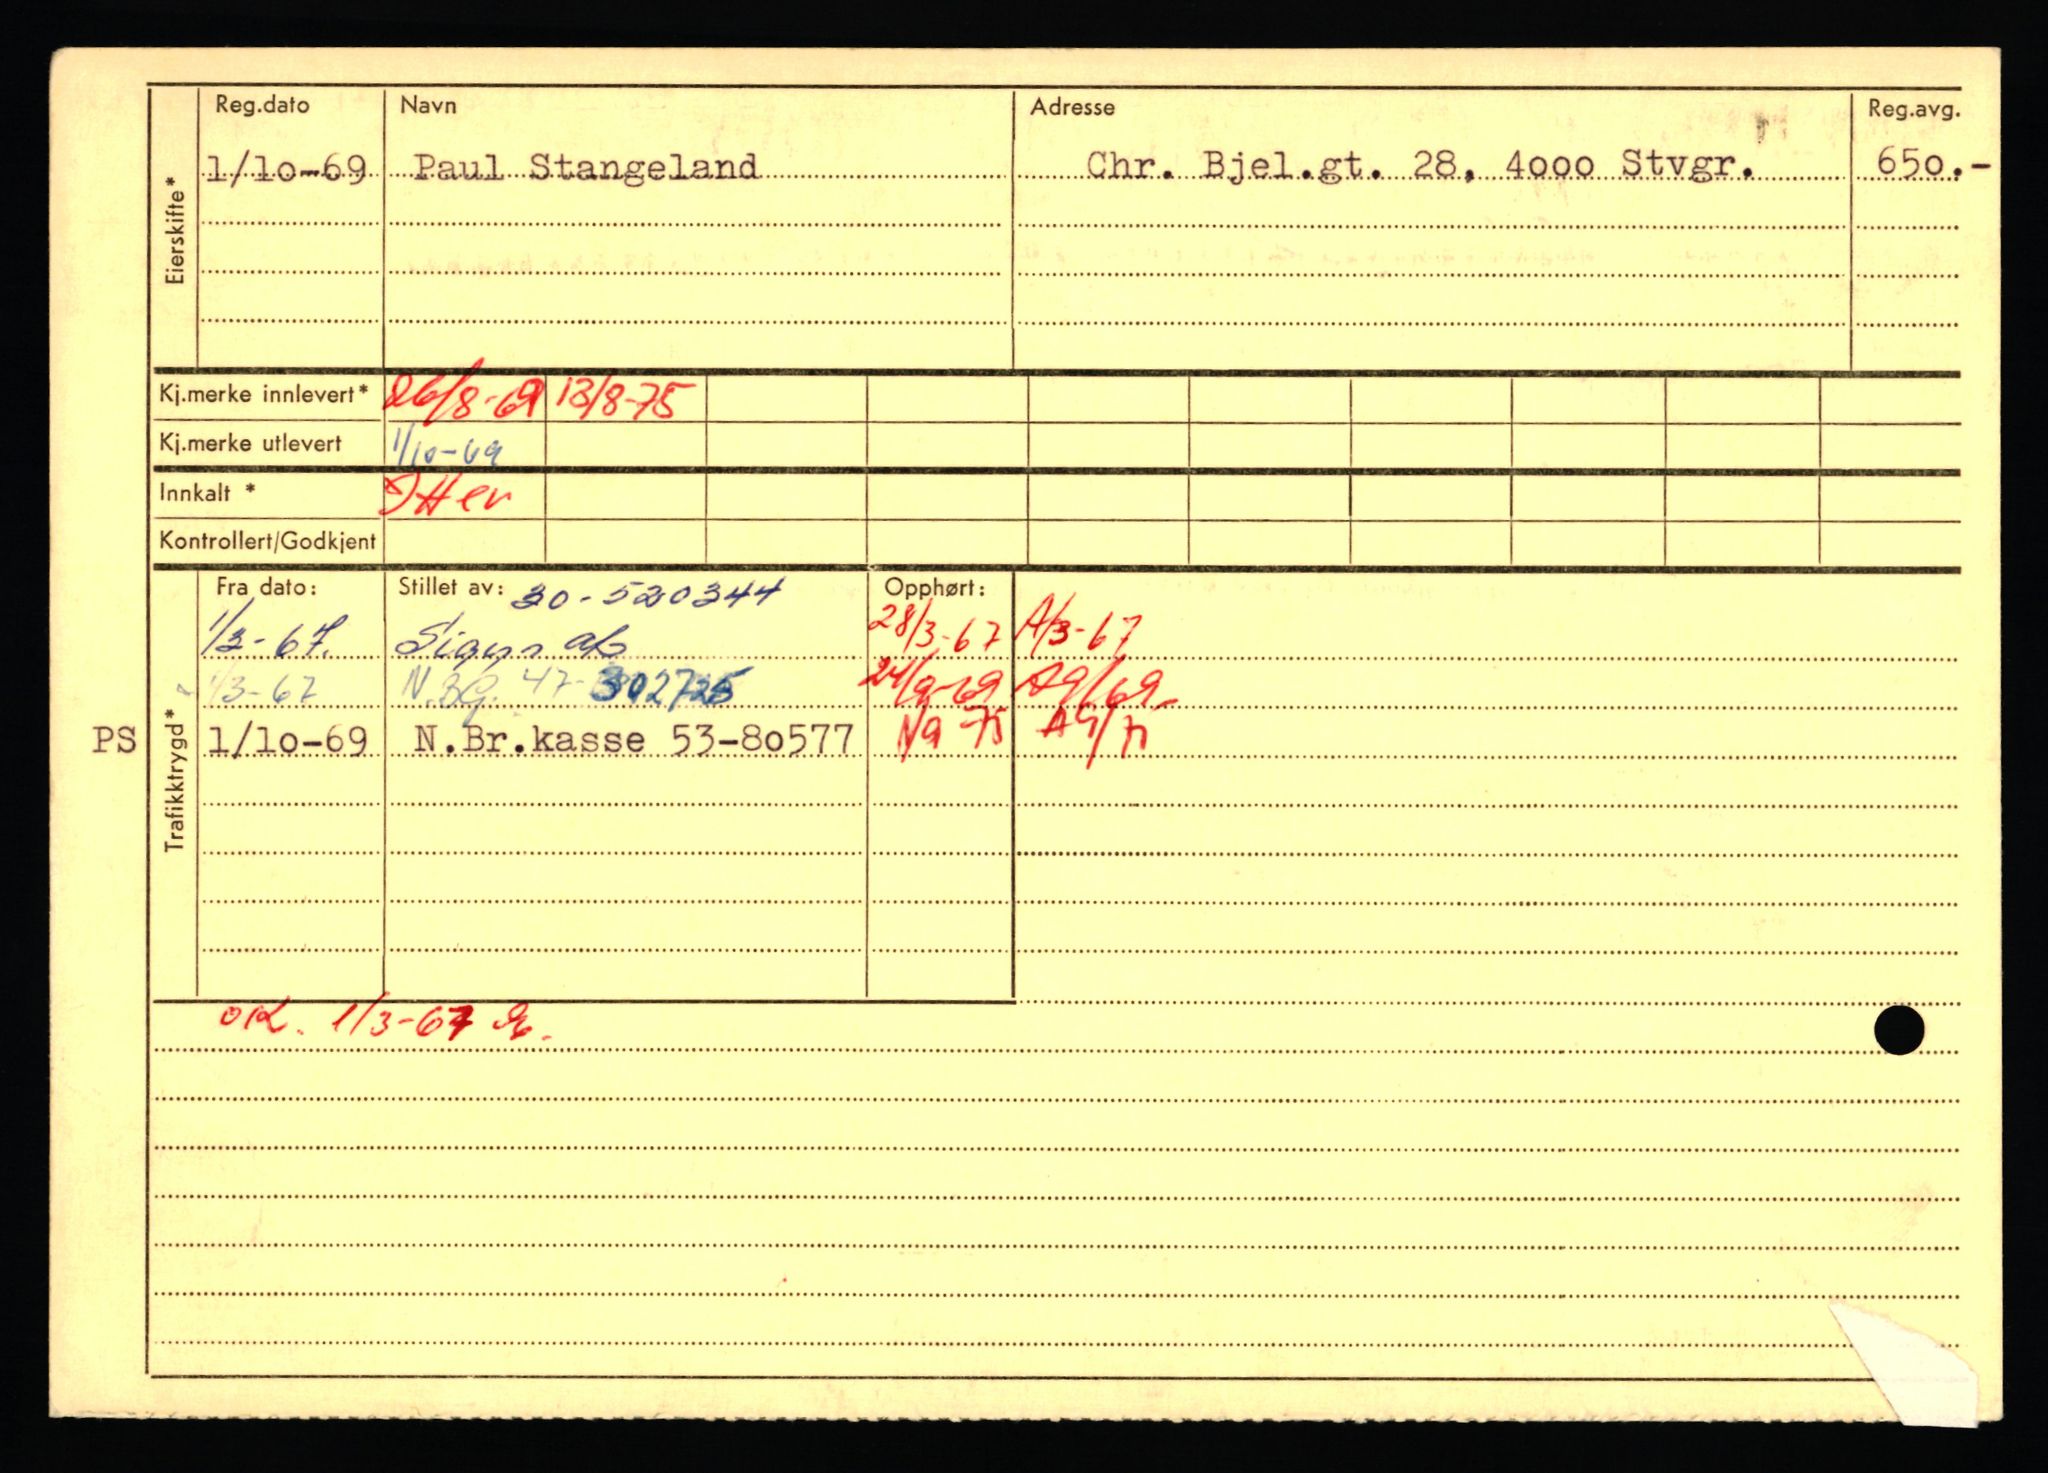 Reg.dato Navn Adresse Reg.avg.
Eierskifte*
1/10-69 Paul Stangeland Chr. Bjel.gt. 28, 4000 Stvgr. 650.-
Kj.merke innlevert* 26/8-69 13/8-75
Kj.merke utlevert 1/10-69
Innkalt *
Kontrollert/Godkjent
Trafikktrygd*
Fra dato: Stillet av: 30-520344 Opphørt:
1/3-67. 28/3-67 A/3-67
1/3-67 N.BG. 47-302725 24/9-69 A9/69
PS 1/10-69 N.Br.kasse 53-80577
OK. 1/3-67